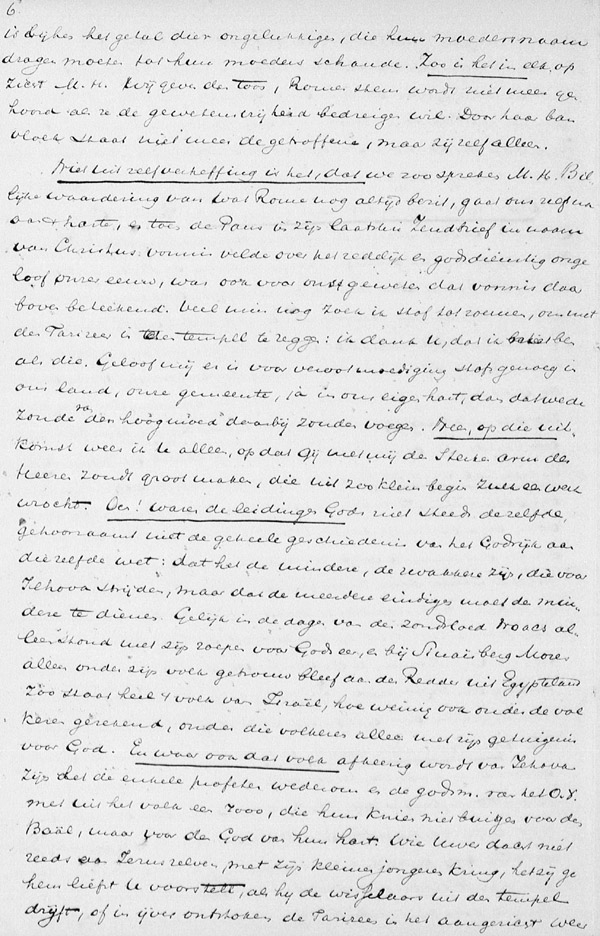 6.
is bijkes het getal dier ongelukkigen, die hun moedersnaam
dragen moeten tot hun moeders schande. Zoo is het in elk op
zicht M. H. Wij geven den toos, Romes stem wordt niet meer ge
hoord als ze de gewetensvrijheid bedreigen wil. Door haar ban
vloek staat niet meer de getroffene, maar zij zelf alleen.
Niet uit zelfverheffing is het, dat we zoo spreken M. H. Bil
lijke waardering van wat Rome nog altijd bezit, gaat ons zelf na
aan 't harte, en toen de Paus in zijn laatsten Zendbrief in naam
van Christus vonnis velde over het zeddelijk en godsdienstig onge
loof onzer eeuw, was ook voor ons geweten dat vonnis daar
boven beteekend. Veel min nog zoek ik stof tot roemen, om met
den Farizeer in den tempel te zeggen: ik dank U, dat ik beter ben
als die. Geloof mij er is voor verootmoediging stof genoeg in
ons land, onze gemeente, ja in ons eigen hart, dan dat we de
zonde van den hoogmoed daarbij zouden voegen. Neen, op die uit
komst wees ik u alleen, opdat gij met mij de Sterke arm des
Heeren zoudt groot maken, die uit zoo klein begin zulk een werk
wrocht. Och! waren de leidingen Gods niet steeds dezelfde,
gehoorzaamt niet de geheele geschiedenis van het Godsrijk aan
diezelfde wet: dat het de mindere, de zwakkere zijn, die voor
Jehova strijden, maar dat de meerdere eindigen moet de min
dere te dienen. Gelijk in de dagen van den zondvloed Noach al
leen stond met zijn roepen voor Gods eer, en bij Sinaïberg Mozes
alleen onder zijn volk getrouw bleef aan den Redder uit Egypteland
Zoo staat heel 't volk van Israël, hoe weinig ook onder de vol
keren gerekend, onder die volkeren alleen met zijn getuigenis
voor God. En waar ook dat volk afkeerig wordt van Jehova
zijn het de enkele profeten wederom en de godsm. van het O. V.
met uit het volk een 7000, die hun knieën niet buigen voor den
Baäl, maar voor den God van hun hart. Wie Uwer daast niet
reeds aan Jeruzalem, met zijn kleinen jongeren kring, het zij ge
hem liefst U voorstelt, als hij de wisselaars uit den tempel
drijft, of in ijver ontstoken den Farizeer in het aangezicht wees